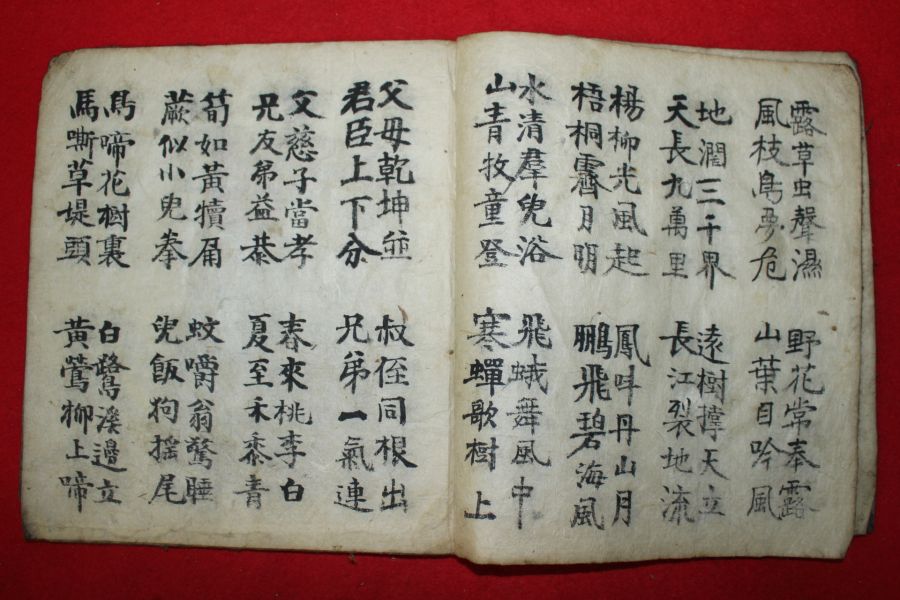 露草虫聲濕
風枝鳥夢危
地濶三千界
天長九萬里
楊柳光風起
梧桐霽月明
水清羣兒浴
山青牧童登
野花常奉露
山葉自吟風
遠樹撑天立
長江裂地流
鳳呌丹山月
鵬飛碧海風
飛蛾舞風中
寒蟬歌樹上
父母乾坤並
君臣上下分
父慈子當孝
兄友弟益恭
筍如黃犢角
蕨似小兒拳
鳥啼花樹裏
馬嘶草堤頭
叔侄同根出
兄弟一氣連
春來桃李白
夏至禾黍青
蚊嚼翁驚睡
兒飯狗摇尾
白鷺溪邊立
黃鶯柳上啼